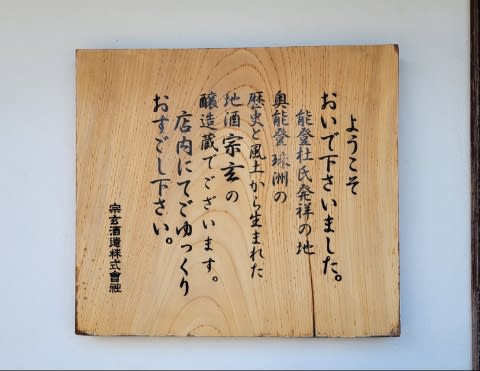 ようこそ
おいで下さいました。
能登杜氏発祥の地
奥能登珠洲の
歴史と風土から生まれた
地酒宗玄の
醸造蔵でございます。
店内にてごゆっくり
おすごし下さい。
宗玄酒造株式會社